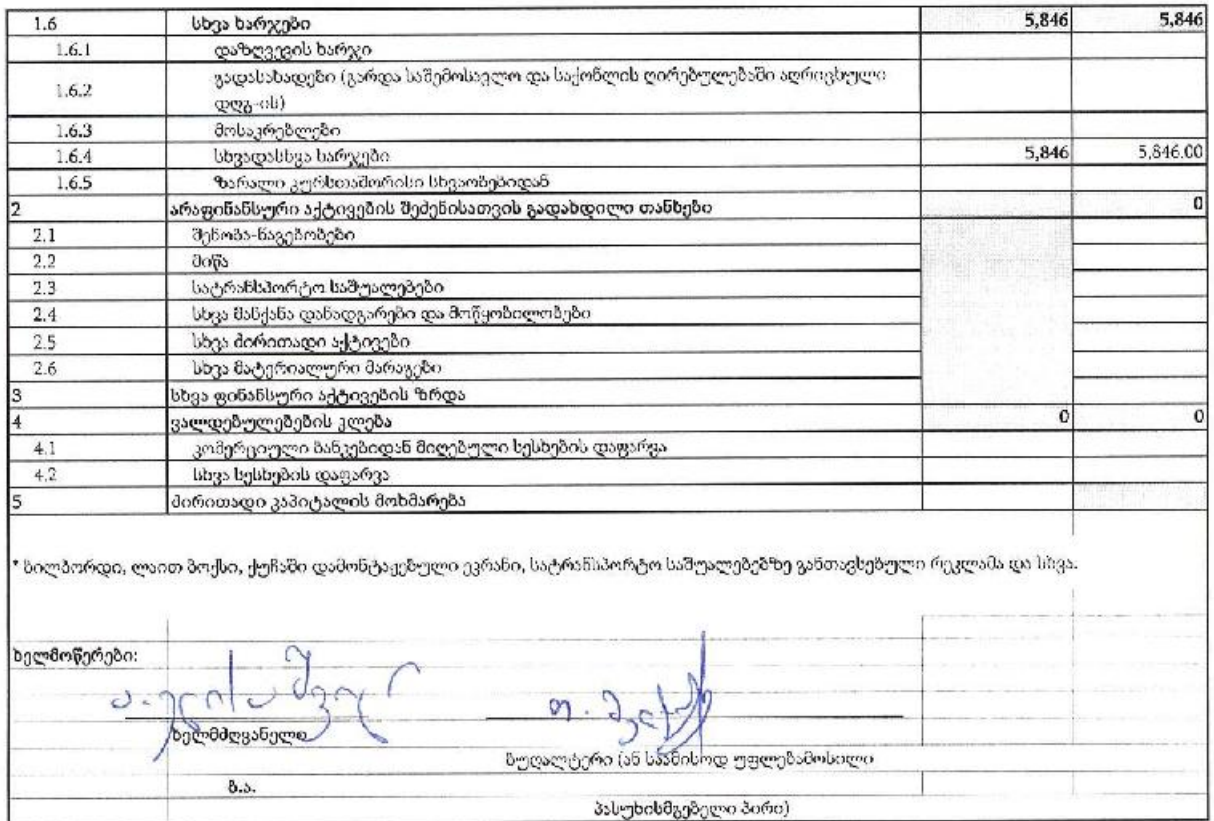 1.6 სხვა ხარჯები 5,846 5,846
1.6.1 დაზღვევის ხარჯი
1.6.2 გადასახადები (გარდა საშემოსავლო და საქონლის ღირებულებაში აღრიცხული
დღგ-ის)
1.6.3 მოსაკრებლები
1.6.4 სხვადასხვა ხარჯები 5,846 5,846.00
1.6.5 ზარალი კურსთაშორისი სხვაობებიდან
2 არაფინანსური აქტივების შეძენისათვის გადახდილი თანხები 0
2.1 შენობა-ნაგებობები
2.2 მიწა
2.3 სატრანსპორტო საშუალებები
2.4 სხვა მანქანა დანადგარები და მოწყობილობები
2.5 სხვა ძირითადი აქტივები
2.6 სხვა მატერიალური მარაგები
3 სხვა ფინანსური აქტივების ზრდა
4 ვალდებულებების კლება 0 0
4.1 კომერციული ბანკებიდან მიღებული სესხების დაფარვა
4.2 სხვა სესხების დაფარვა
5 ძირითადი კაპიტალის მოხმარება
* ბილბორდი, ლაით ბოქსი, ქუჩაში დამონტაჟებული ეკრანი, სატრანსპორტო საშუალებებზე განთავსებული რეკლამა და სხვა.
ხელმოწერები:
ხელმძღვანელი
ბუღალტერი (ან საამისოდ უფლებამოსილი
ბ.ა.
პასუხისმგებელი პირი)